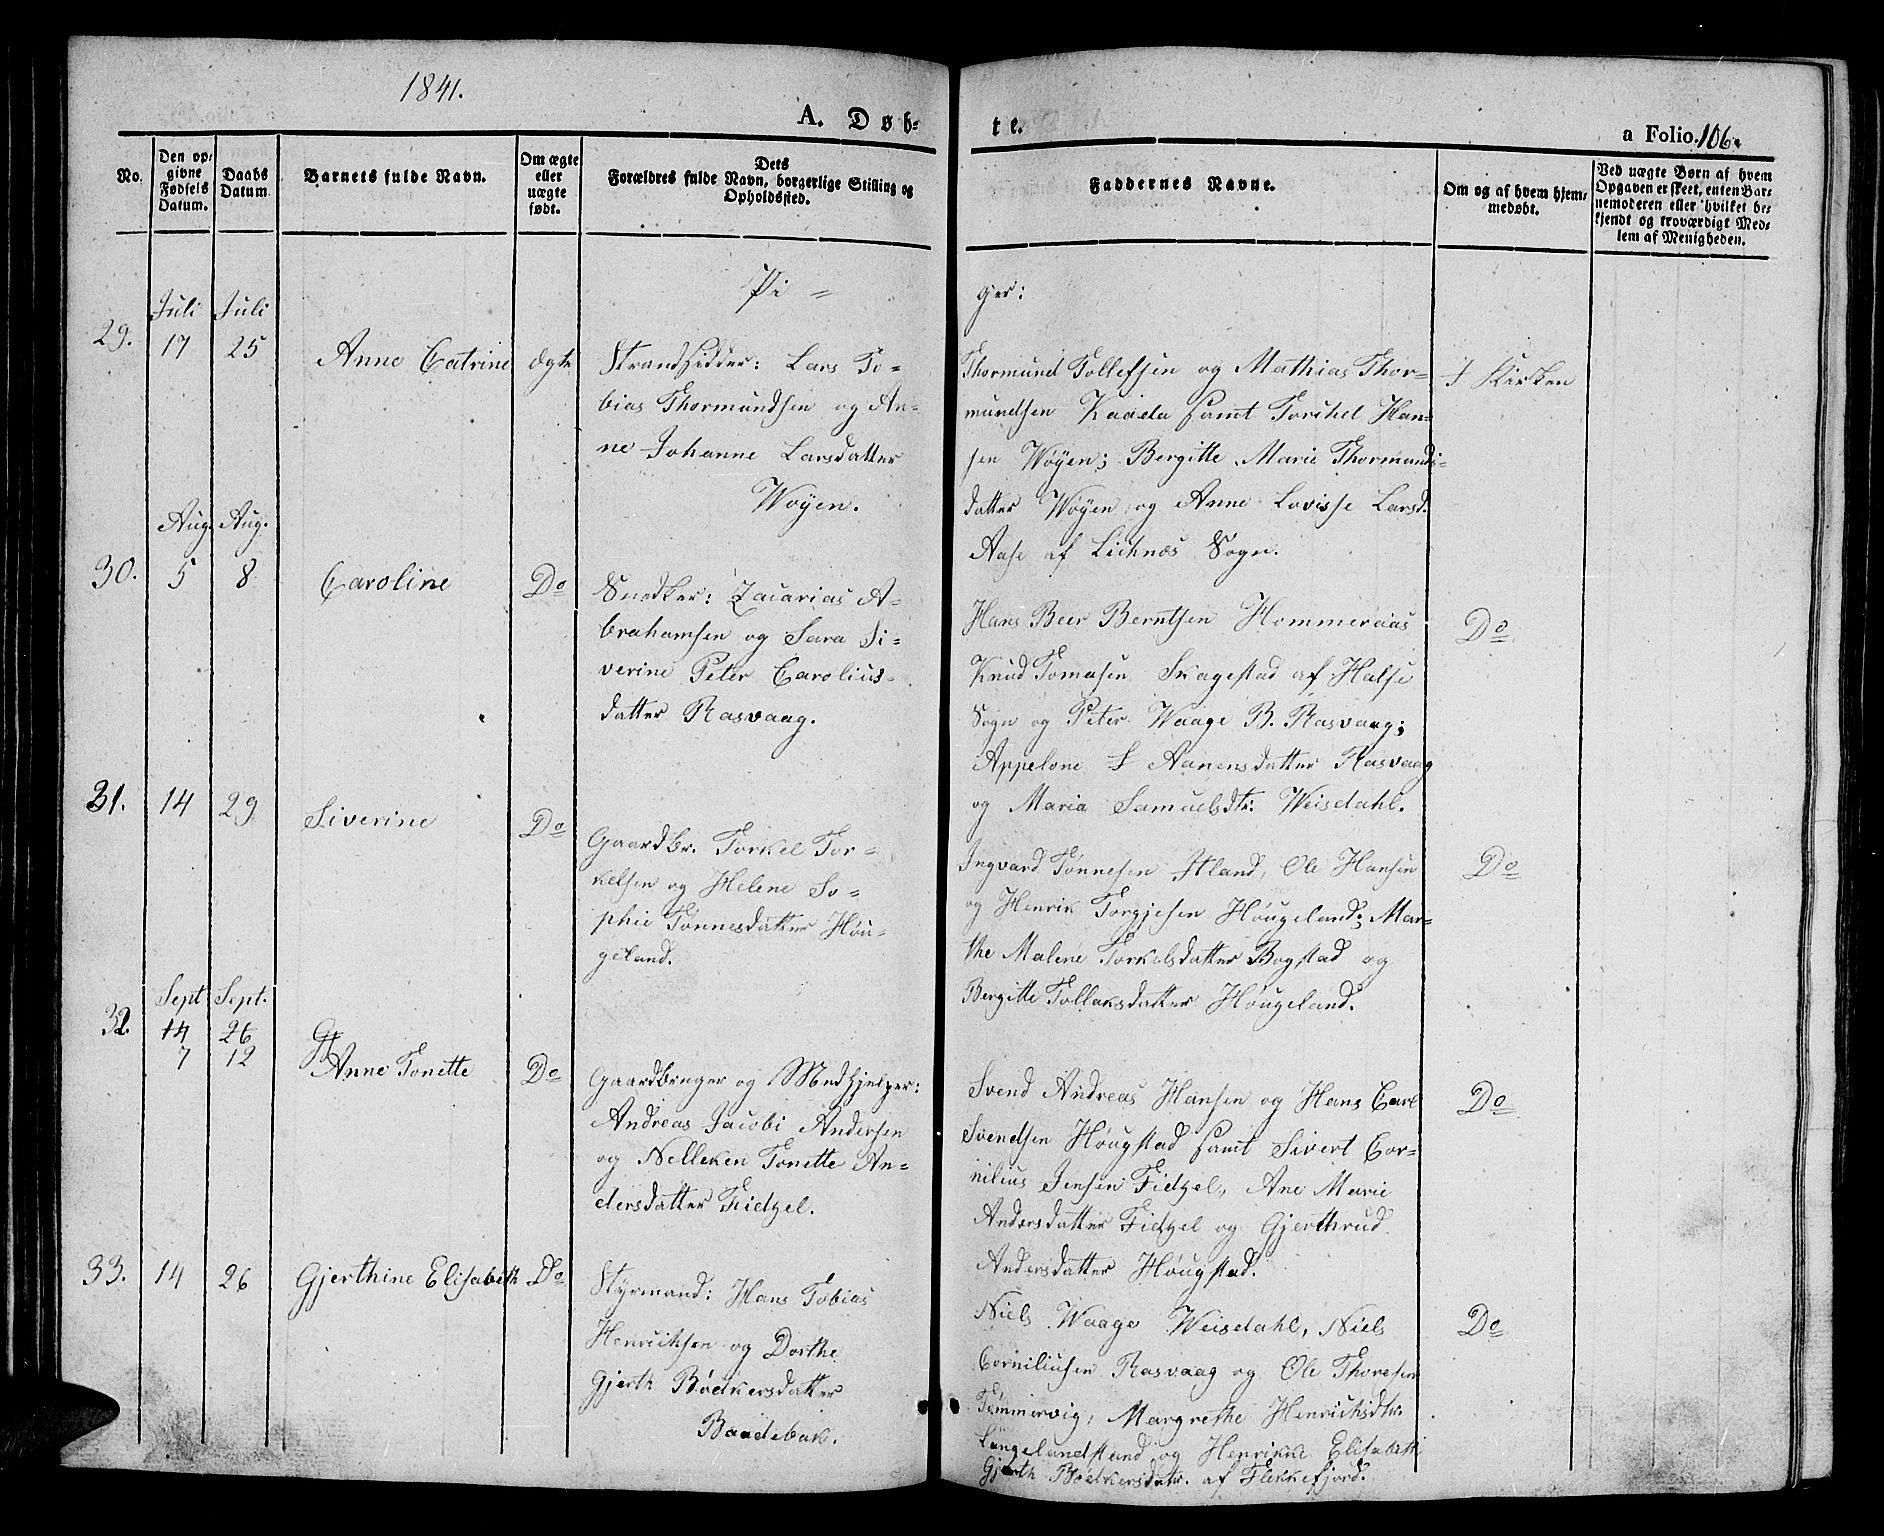 1841.
A. Døb-
te.
a Folio. 106.
No.
Den op-
givne
Fødsels
Datum.
Daabs
Datum.
Barnets fulde Navn.
Om ægte
eller
uægte
født.
Dets
Forældres fulde Navn, borgerlige Stilling og
Opholdssted.
Faddernes Navne.
Om og af hvem hjem-
medøbt.
Ved uægte Børn af hvem
Opgaven er skeet, enten Bar-
nemoderen eller hvilket be-
kjendt og troværdigt Med-
lem af Menigheden.
Pi =
ger:
Juli Juli
29. 17 25 Anne Catrine ægte
Strandsidder: Lars To-
bias Thormundsen og An-
ne Johanne Larsdatter
Wøyen.
Thormund Tollefsen og Mathias Thor-
mundsen Kaada samt Torchel Han-
sen Wøyen; Bergitte Marie Thormunds-
datter Wøyen og Anne Lovisse Larsd.
Aase af Lichnæs Sogn.
I Kirken
Aug. Aug.
30. 5 8 Caroline Do
Snedker: Zacarias A-
brahamsen og Sara Si-
verine Peter Carolius-
datter Rasvaag.
Hans Beer Berntsen Hommeraas
Knud Tomasen Skagestad af Halse
Sogn og Peter Waage B. Rasvaag;
Appelone I Aanensdatter Rasvaag
og Maria Samuelsdtr. Weisdahl.
Do
31. 14 29 Siverine Do
Gaardbr. Torkel Tor-
kelsen og Helene So-
phie Tønnesdatter Høu-
geland.
Ingvard Tønnesen Itland, Ole Hansen
og Henrik Torgjesen Høugeland; Mar-
the Malene Torkelsdatter Bogstad og
Bergitte Tollaksdatter Høugeland.
Do
Sept Sept.
32. 14 26 Gj
7 12
Anne Tonette Do
Gaardbruger og Medhjelper:
Andreas Jacobi Andersen
og Nelleken Tonette An-
dersdatter Fidzel.
Svend Andreas Hansen og Hans Carl
Svendsen Høugstad samt Sivert Cor-
nilius Jensen Fidzel, Ane Marie
Andersdatter Fidzel og Gjerthrud
Andersdatter Høugstad.
Do
33. 14 26 Gjerthine Elisabeth Do
Styrmand: Hans Tobias
Henrichsen og Dorthe
Gjerth Bødkersdatter
Baadebak.
Niels Waage Weisdahl, Niels
Corniliusen Rasvaag og Ole Thoresen
Tømmervig, Margrethe Henrichsdtr.
Længelandstrand og Henrikke Elisabeth
Gjerth Bødkersdatr. af Flekkefjord.
Do